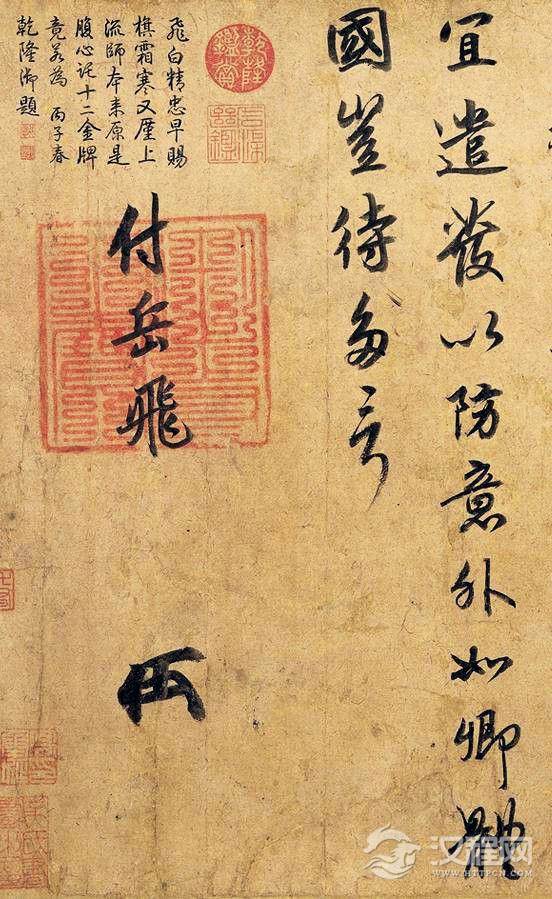 宜遣發以防意外如卿體
國豈待多言
付岳飛
飛白精忠早賜
旗霜寒又屢上
流師本来原是
腹心託十二金牌
竟若為 丙子春
乾隆御題
乾隆鑑賞
汉程网
WWW.HTTPCN.COM